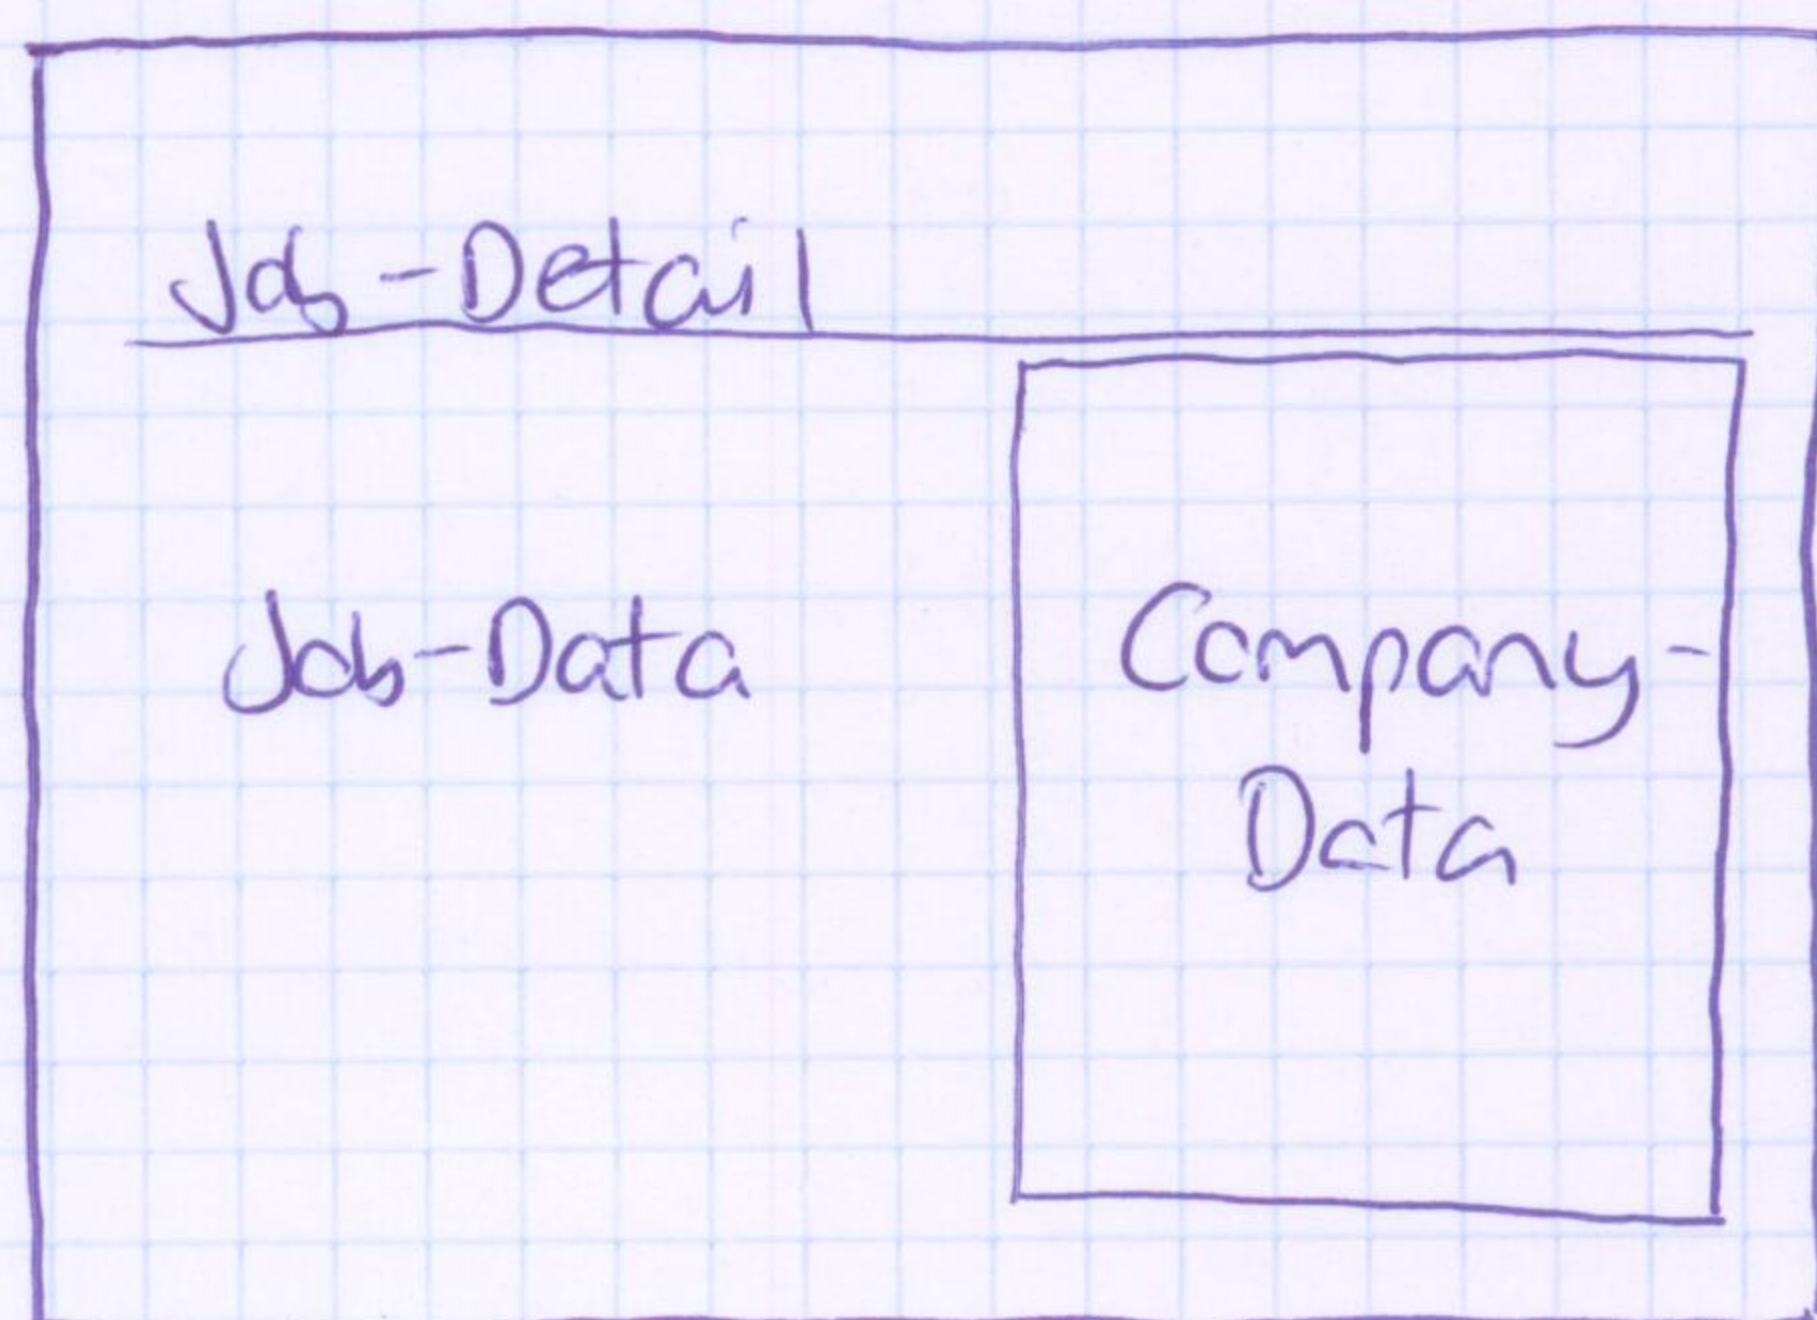 Job-Detail
Job-Data
Company-
Data